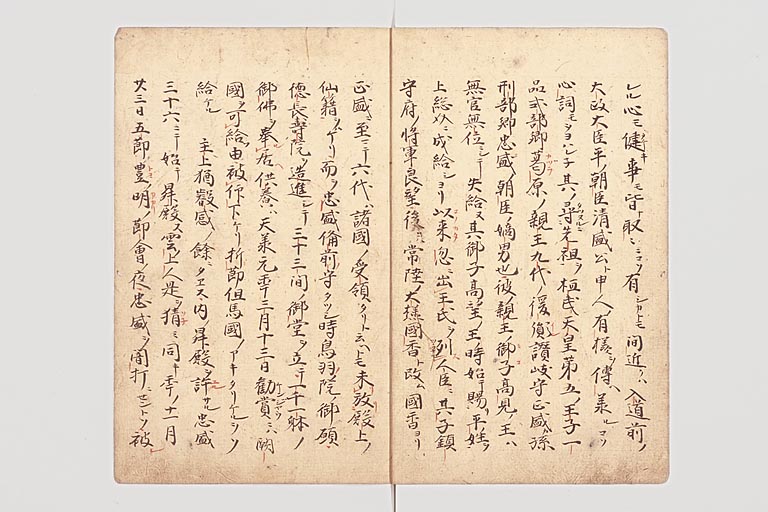 ケル心モ健事モ皆取々ニコソ有シカトモ間近クハ入道前ノ
大政大臣平ノ朝臣清盛公ト申人ノ有様ヲ傳ヘ承ルコソ
心詞モヲヨハレネ其ノ尋先祖ヲ桓武天皇第五ノ王子一
品式部卿葛原ノ親王九代ノ後胤讃岐守正盛カ孫
刑部卿忠盛ノ朝臣ノ嫡男也彼ノ親王ノ御子高見ノ王ハ
無官無位ニシテ失給又其御子高望ノ王時始テ賜平姓ヲ
上総ノ介ニ成給シヨリ以来忽ニ出王氏ヲ列人臣ニ其ノ子鎮
守府ノ将軍良望後ニハ常陸ノ大掾國香ト改ム國香ヨリ
正盛ニ至ニテ六代ハ諸國ノ受領タリト云ヘトモ未放殿上ノ
仙籍ヲハ而ヲ忠盛備前守タリシ時鳥羽院ノ御願
徳長壽院ヲ造進シテ三十三間ノ御堂ヲ立テ一千一躰ノ
御佛ヲ奉居供養ハ天養元年三月十三日勧賞ニハ闕
國ヲ可給由被仰下ケリ折節但馬國ノアキタリケルヲソ
給ケル 主上猶叡感ノ餘ニタエス内ノ昇殿ヲ許サル忠盛
三十六ニテ始テ昇殿ス雲ノ上人是ヲ猜ミ同キ年ノ十一月
廿三日五節豊ノ明ノ節會ノ夜忠盛ヲ闇打ニセントソ被